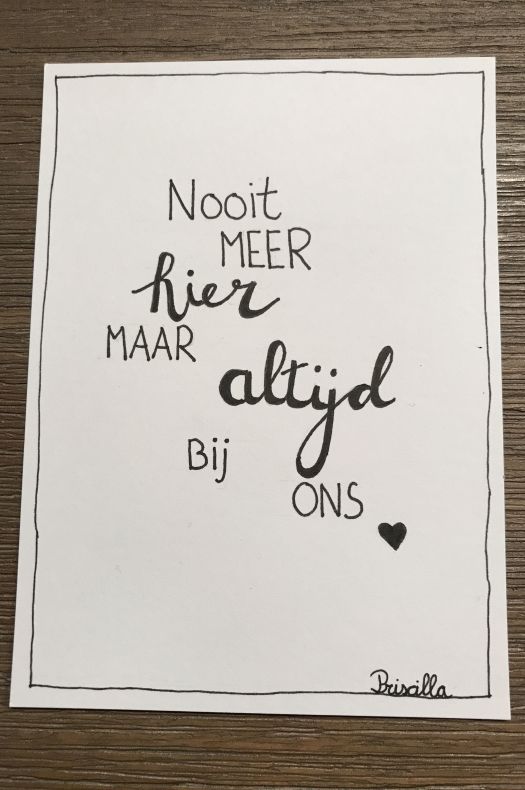 Nooit
MEER
hier
MAAR
altijd
Bij
ONS
Priscilla